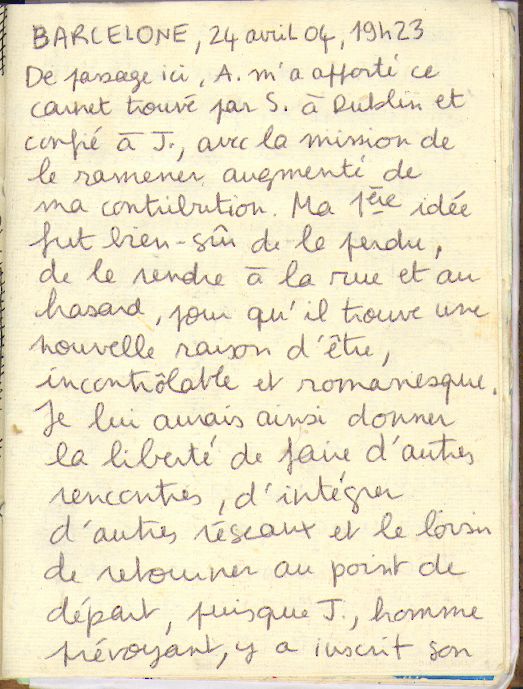 BARCELONE, 24 avril 04, 19h23
De passage ici, A. m'a apporté ce
carnet trouvé par S. à Dublin et
confié à J., avec la mission de
le ramener augmenté de
ma contribution. Ma 1ère idée
fut bien-sûr de le perdre,
de le rendre à la rue et au
hasard, pour qu'il trouve une
nouvelle raison d'être,
incontrôlable et romanesque.
Je lui aurais ainsi donner
la liberté de faire d'autres
rencontres, d'intégrer
d'autres réseaux et le loisir
de retourner au point de
départ, puisque J., homme
prévoyant, y a inscrit son